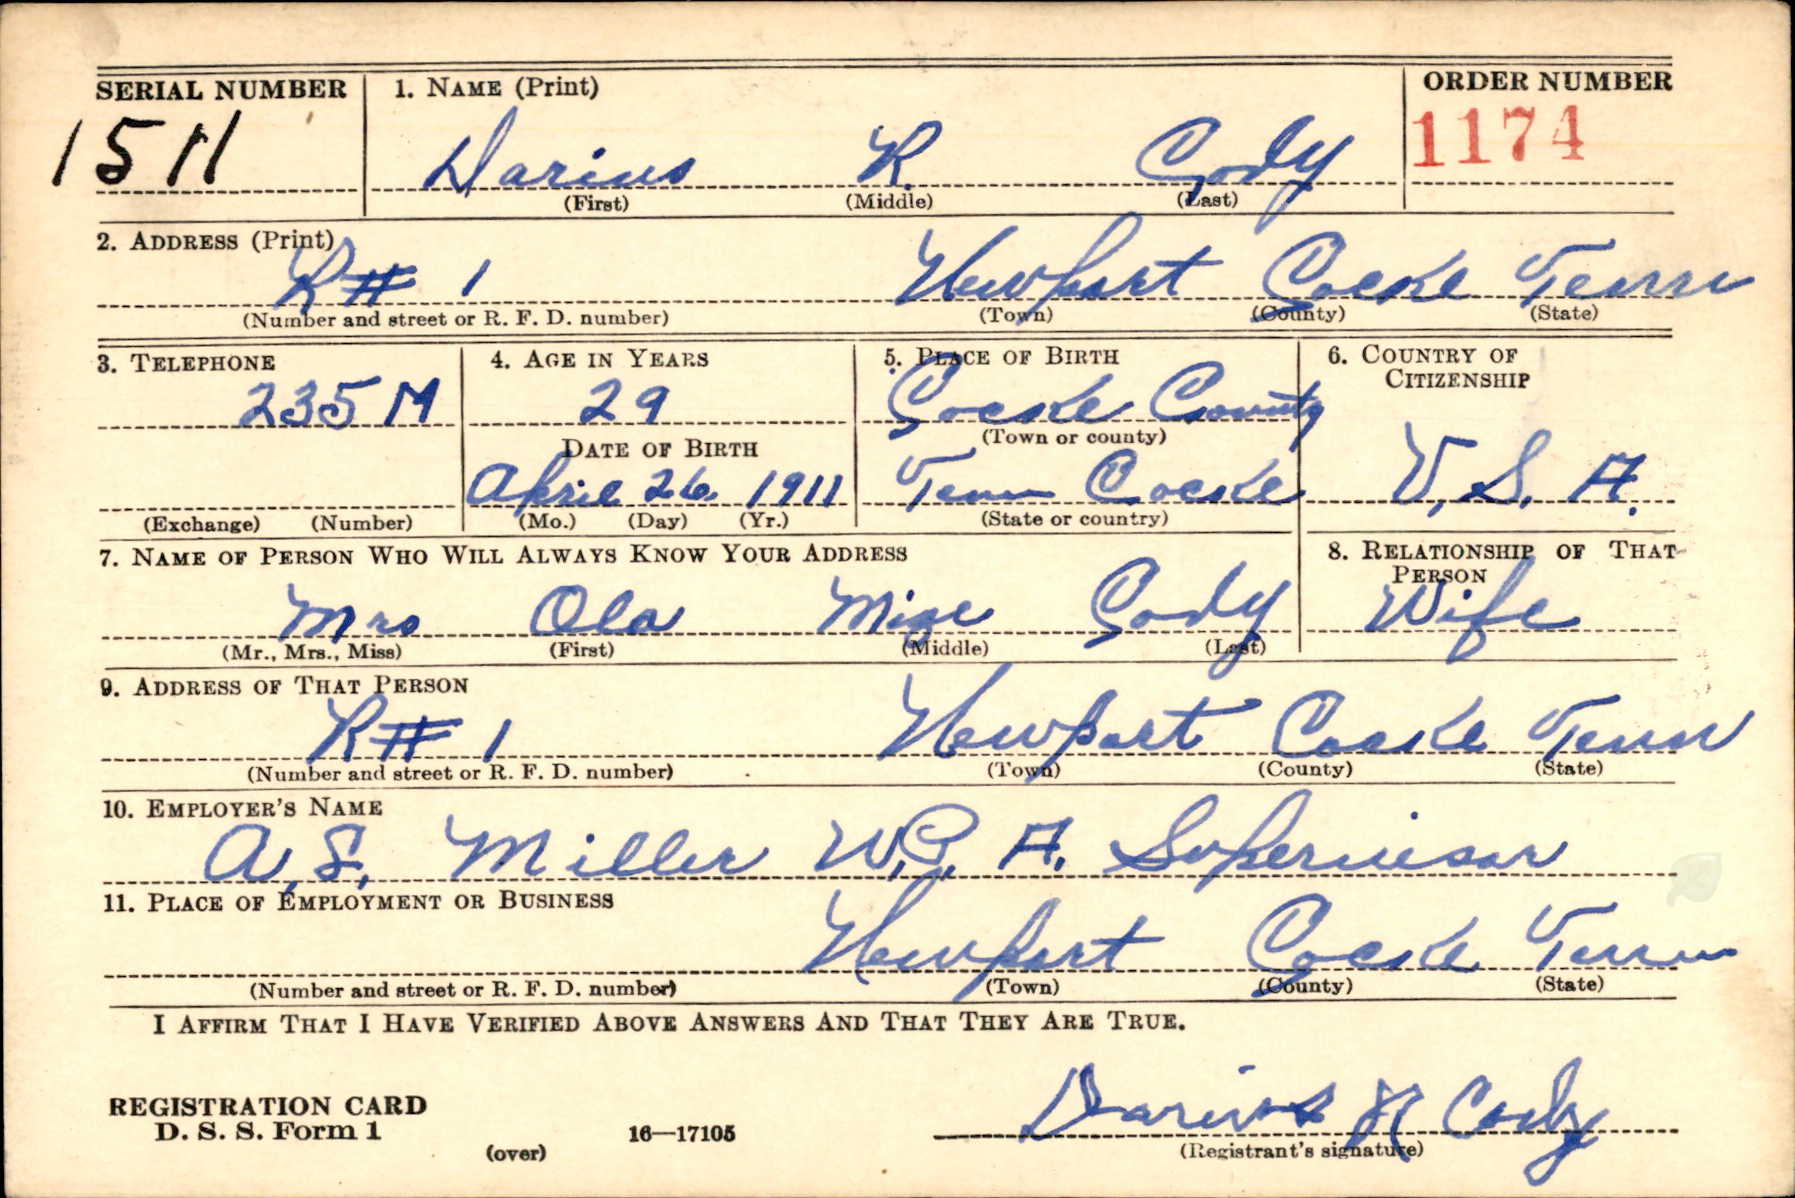 SERIAL NUMBER 1. NAME (Print) ORDER NUMBER
1511 Darius R. Cody 1174
(First) (Middle) (Last)
2. ADDRESS (Print)
R# 1 Newport Cocke Tenn
(Number and street or R. F. D. number) (Town) (County) (State)
3. TELEPHONE 4. AGE IN YEARS 5. PLACE OF BIRTH 6. COUNTRY OF
CITIZENSHIP
235 M 29 Cocke County
(Town or county)
DATE OF BIRTH
April 26 1911 Tenn Cocke U.S.A.
(Exchange) (Number) (Mo.) (Day) (Yr.) (State or country)
7. NAME OF PERSON WHO WILL ALWAYS KNOW YOUR ADDRESS 8. RELATIONSHIP OF THAT
PERSON
Mrs Ola Mize Cody Wife
(Mr., Mrs., Miss) (First) (Middle) (Last)
9. ADDRESS OF THAT PERSON
R# 1 Newport Cocke Tenn
(Number and street or R. F. D. number) (Town) (County) (State)
10. EMPLOYER'S NAME
A.S. Miller W.P.A. Supervisor
11. PLACE OF EMPLOYMENT OR BUSINESS
Newport Cocke Tenn
(Number and street or R. F. D. number) (Town) (County) (State)
I AFFIRM THAT I HAVE VERIFIED ABOVE ANSWERS AND THAT THEY ARE TRUE.
REGISTRATION CARD Darius R Cody
D. S. S. Form 1 16—17105
(over) (Registrant's signature)